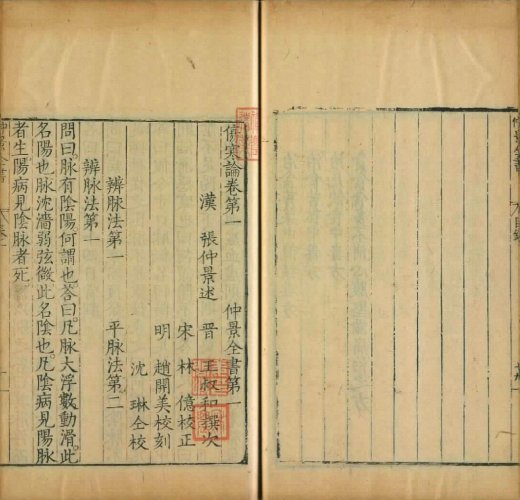 傷寒論卷第一 仲景全書第一
漢 張仲景述 晉 王叔和撰次
宋 林 億校正
明 趙開美校刻
沈 琳仝校
辨脉法第一 平脉法第二
辨脉法第一
問曰脉有陰陽何謂也荅曰凡脉大浮數動滑此
名陽也脉沈濇弱弦微此名陰也凡陰病見陽脉
者生陽病見陰脉者死
仲景全書